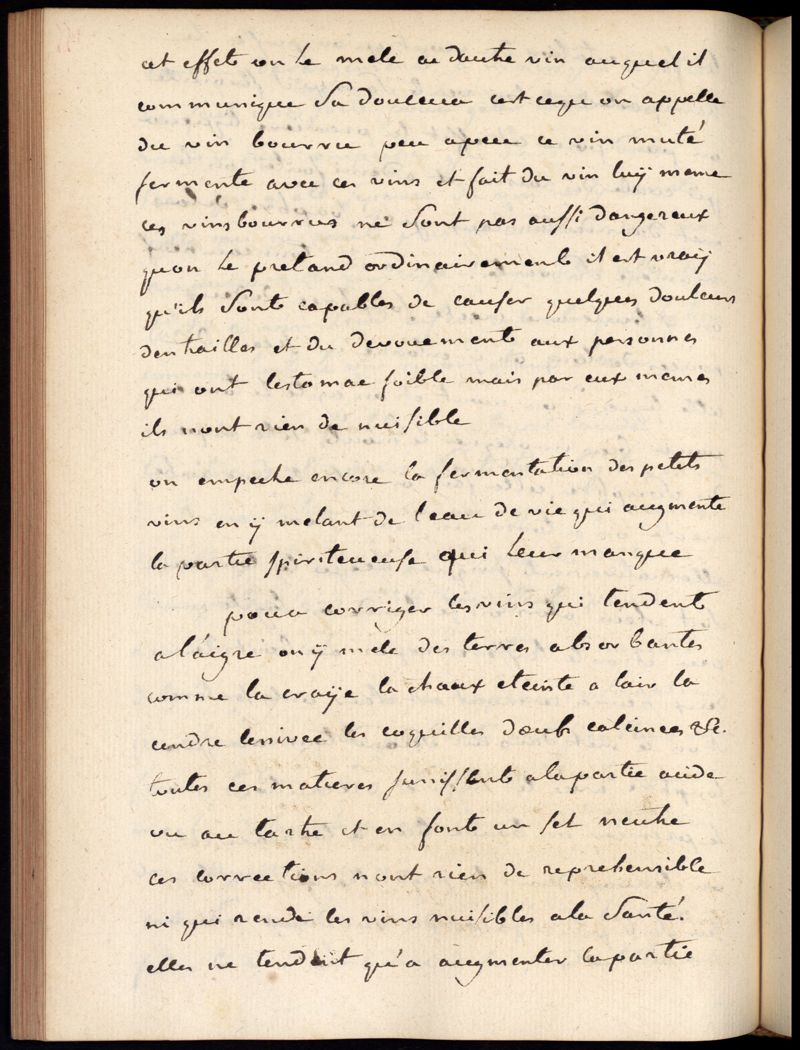 cet effet on le mele a dautre vin auquel il
communique sa douceur cest cequ on appelle
du vin bourru peu apeu ce vin muté
fermente avec ces vins et fait du vin luÿ meme
ces vins bourrus ne sont pas aussi dangereux
quon le pretand ordinairement il est vraÿ
qu'ils sont capables de causer quelques douleurs
dentrailles et du devouement aux personnes
qui ont lestomac foible mais par eux memes
ils nont rien de nuisible
on empeche encore la fermentation des petits
vins en ÿ melant de leau de vie qui augmente
la partie spiritueuse qui leur manque
pour corriger les vins qui tendent
a l'aigre on ÿ mele des terres absorbantes
comme la craÿe la chaux eteinte a lair la
cendre lessivee les coquilles dœufs calcinees &c.
toutes ces matieres sunissent a la partie acide
ou au tartre et en font un sel neutre
ces corrections nont rien de reprehensible
ni qui rende les vins nuisibles a la santé.
elles ne tendent qu'a augmenter la partie